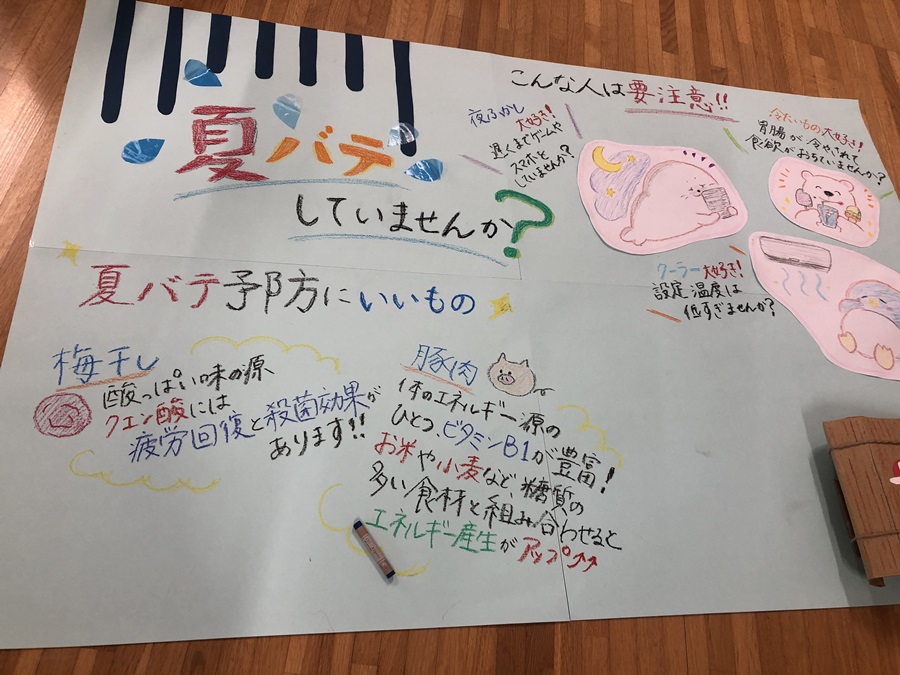 夏バテ
していませんか?
こんな人は要注意!!
夜ふかし
大好き!
遅くまでゲームや
スマホを
していませんか?
冷たいもの大好き!
胃腸が冷やされて
食欲がおちていませんか?
クーラー大好き!
設定温度は
低すぎませんか?
夏バテ予防にいいもの
梅干し
酸っぱい味の源、
クエン酸には
疲労回復と殺菌効果が
あります!!
豚肉
体のエネルギー源の
ひとつ、ビタミンB1が豊富!
お米や小麦など、糖質の
多い食材と組み合わせると
エネルギー産生がアップ↑↑